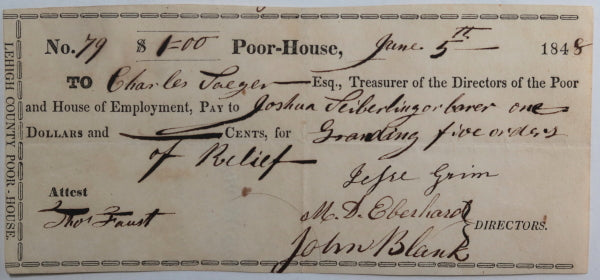 LEHIGH COUNTY POOR-HOUSE.
No. 79 $ 1=00 Poor-House, June 5th 1848
TO Charles Saeger Esq., Treasurer of the Directors of the Poor
and House of Employment, PAY to Joshua Seiberling or barer one
DOLLARS and CENTS, for Granding five orders
of Relief
Jesse Grim
Attest
Thos Faust
M. D. Eberhard
John Blank
DIRECTORS.